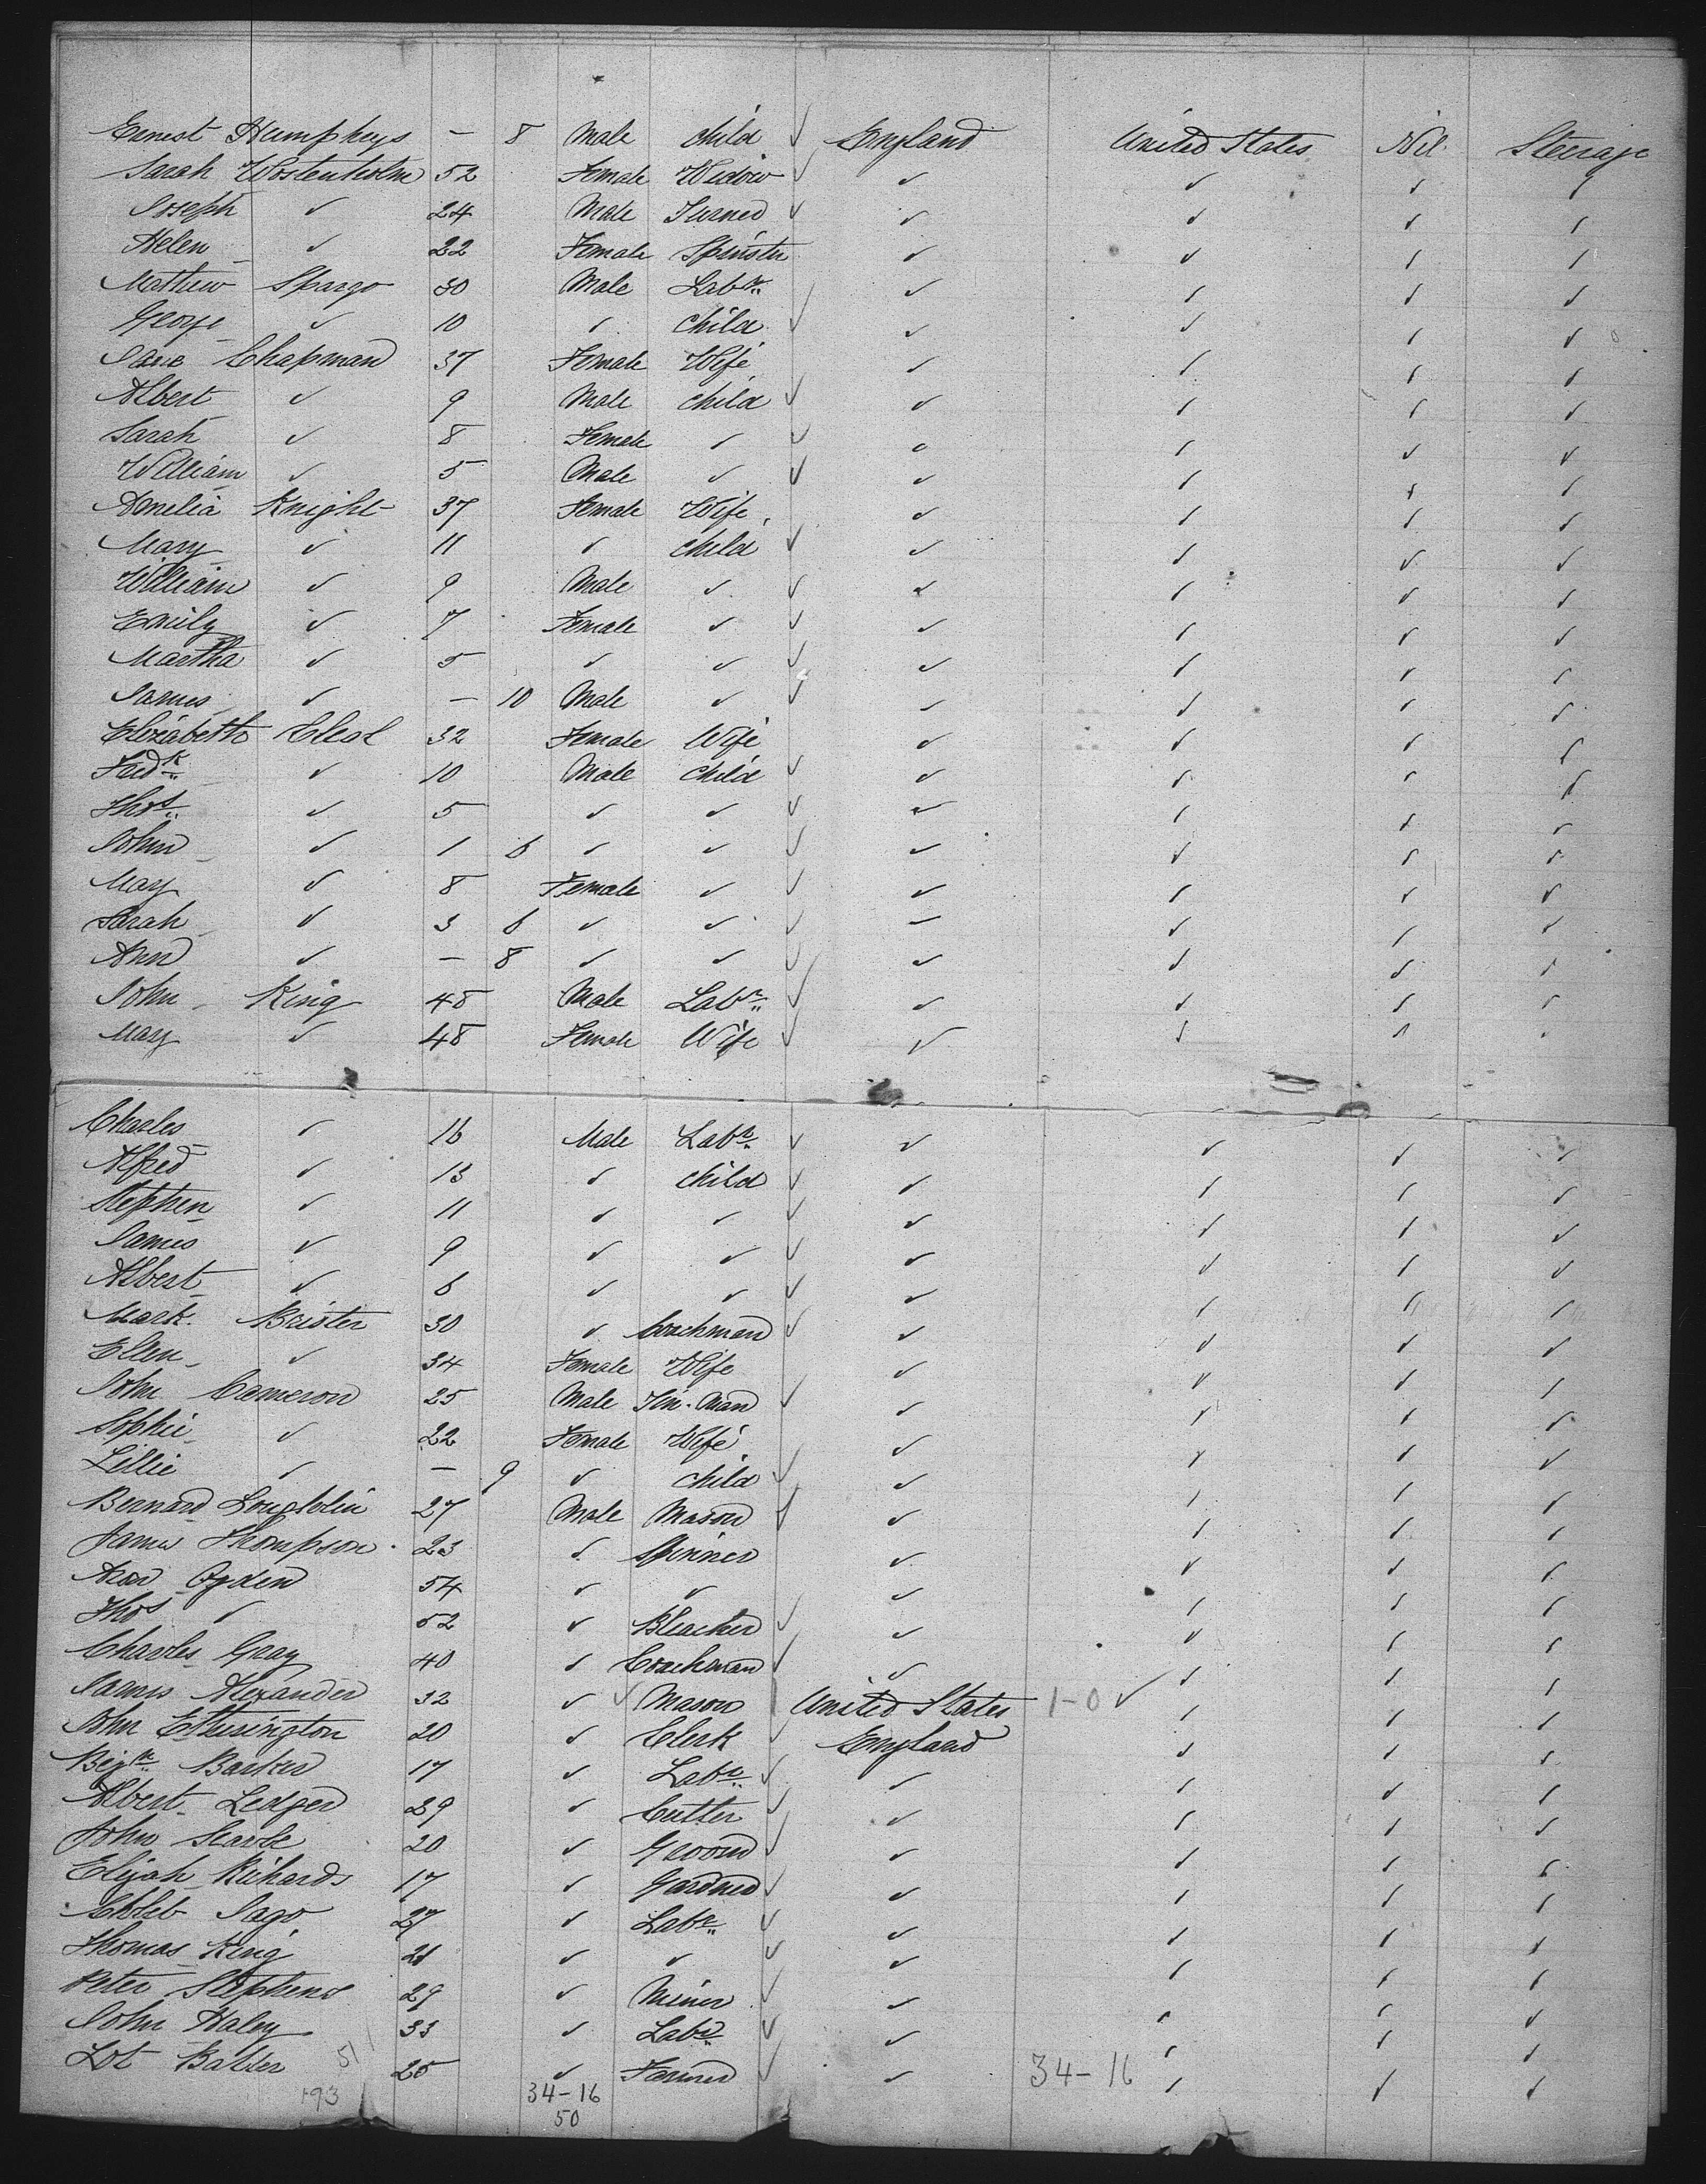 Ernest Humphreys — 8 Male Child ✓ England United States Nil. Steerage
Sarah Wostenholm 52 Female Widow ✓ ✓ ✓ ✓ ✓
Joseph ✓ 24 Male Turner ✓ ✓ ✓ ✓ ✓
Helen ✓ 22 Female Spinster ✓ ✓ ✓ ✓
Mathew Spargo 30 Male Labr. ✓ ✓ ✓ ✓
George ✓ 10 ✓ Child ✓ ✓ ✓ ✓ ✓
Jane Chapman 37 Female Wife ✓ ✓ ✓ ✓
Albert ✓ 9 Male Child ✓ ✓ ✓ ✓ ✓
Sarah ✓ 8 Female ✓ ✓ ✓ ✓ ✓ ✓
William ✓ 5 Male ✓ ✓ ✓ ✓ ✓ ✓
Amelia Knight 37 Female Wife ✓ ✓ ✓ ✓
Mary ✓ 11 ✓ Child ✓ ✓ ✓ ✓ ✓
William ✓ 9 Male ✓ ✓ ✓ ✓ ✓ ✓
Emily ✓ 7 Female ✓ ✓ ✓ ✓ ✓ ✓
Martha ✓ 5 ✓ ✓ ✓ ✓ ✓ ✓ ✓
James ✓ — 10 Male ✓ ✓ ✓ ✓ ✓ ✓
Elizabeth 32 Female Wife ✓ ✓ ✓ ✓
Fredk. ✓ 10 Male Child ✓ ✓ ✓ ✓ ✓
Thos. ✓ 5 ✓ ✓ ✓ ✓ ✓ ✓ ✓
John ✓ 1 6 ✓ ✓ ✓ ✓ ✓ ✓ ✓
Mary ✓ 8 Female ✓ ✓ ✓ ✓ ✓ ✓
Sarah ✓ 3 6 ✓ ✓ ✓ ✓ ✓ ✓ ✓
Ann ✓ — 8 ✓ ✓ ✓ ✓ ✓ ✓ ✓
John King 48 Male Labr. ✓ ✓ ✓ ✓ ✓
Mary ✓ 48 Female Wife ✓ ✓ ✓ ✓
Charles ✓ 16 Male Labr. ✓ ✓ ✓ ✓ ✓
Alfred ✓ 13 ✓ Child ✓ ✓ ✓ ✓ ✓
Stephen ✓ 11 ✓ ✓ ✓ ✓ ✓ ✓ ✓
James ✓ 9 ✓ ✓ ✓ ✓ ✓ ✓ ✓
Albert ✓ 6 ✓ ✓ ✓ ✓ ✓ ✓ ✓
Mark Brister 30 ✓ Coachman ✓ ✓ ✓ ✓ ✓
Ellen ✓ 34 Female Wife ✓ ✓ ✓ ✓
John Cameron 25 Male Tin-Man ✓ ✓ ✓ ✓ ✓
Sophie ✓ 22 Female Wife ✓ ✓ ✓ ✓
Lillie ✓ — 9 ✓ Child ✓ ✓ ✓ ✓ ✓
Bernard Loughlin 27 Male Mason ✓ ✓ ✓ ✓ ✓
James Thompson 23 ✓ Spinner ✓ ✓ ✓ ✓
Ogden 54 ✓ ✓ ✓ ✓ ✓ ✓
Thos ✓ 52 ✓ Bleacher ✓ ✓ ✓ ✓ ✓
Charles Gray 40 ✓ Coachman ✓ ✓ ✓ ✓ ✓
James Alexander 32 ✓ ✓ Mason United States 1-0 ✓ ✓ ✓ ✓
John Etherington 20 ✓ Clerk ✓ England ✓ ✓ ✓
Barker 17 ✓ Labr. ✓ ✓ ✓ ✓ ✓
Albert Ledger 29 ✓ Cutter ✓ ✓ ✓ ✓ ✓
John Searle 20 ✓ Groom ✓ ✓ ✓ ✓ ✓
Elijah Richards 17 ✓ Gardner ✓ ✓ ✓ ✓ ✓
Jago 27 ✓ Labr. ✓ ✓ ✓ ✓ ✓
Thomas King 21 ✓ ✓ ✓ ✓ ✓ ✓ ✓
Peter Stephens 29 ✓ Miner ✓ ✓ ✓ ✓ ✓
John Haley 33 ✓ Labr. ✓ ✓ ✓ ✓ ✓
Lot 51 25 ✓ Farmer ✓ ✓ 34-16 ✓ ✓ ✓
193 34-16
50